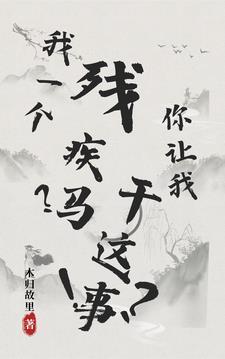 我一个
残疾吗?
你让我
干这事?!
木归故里
著